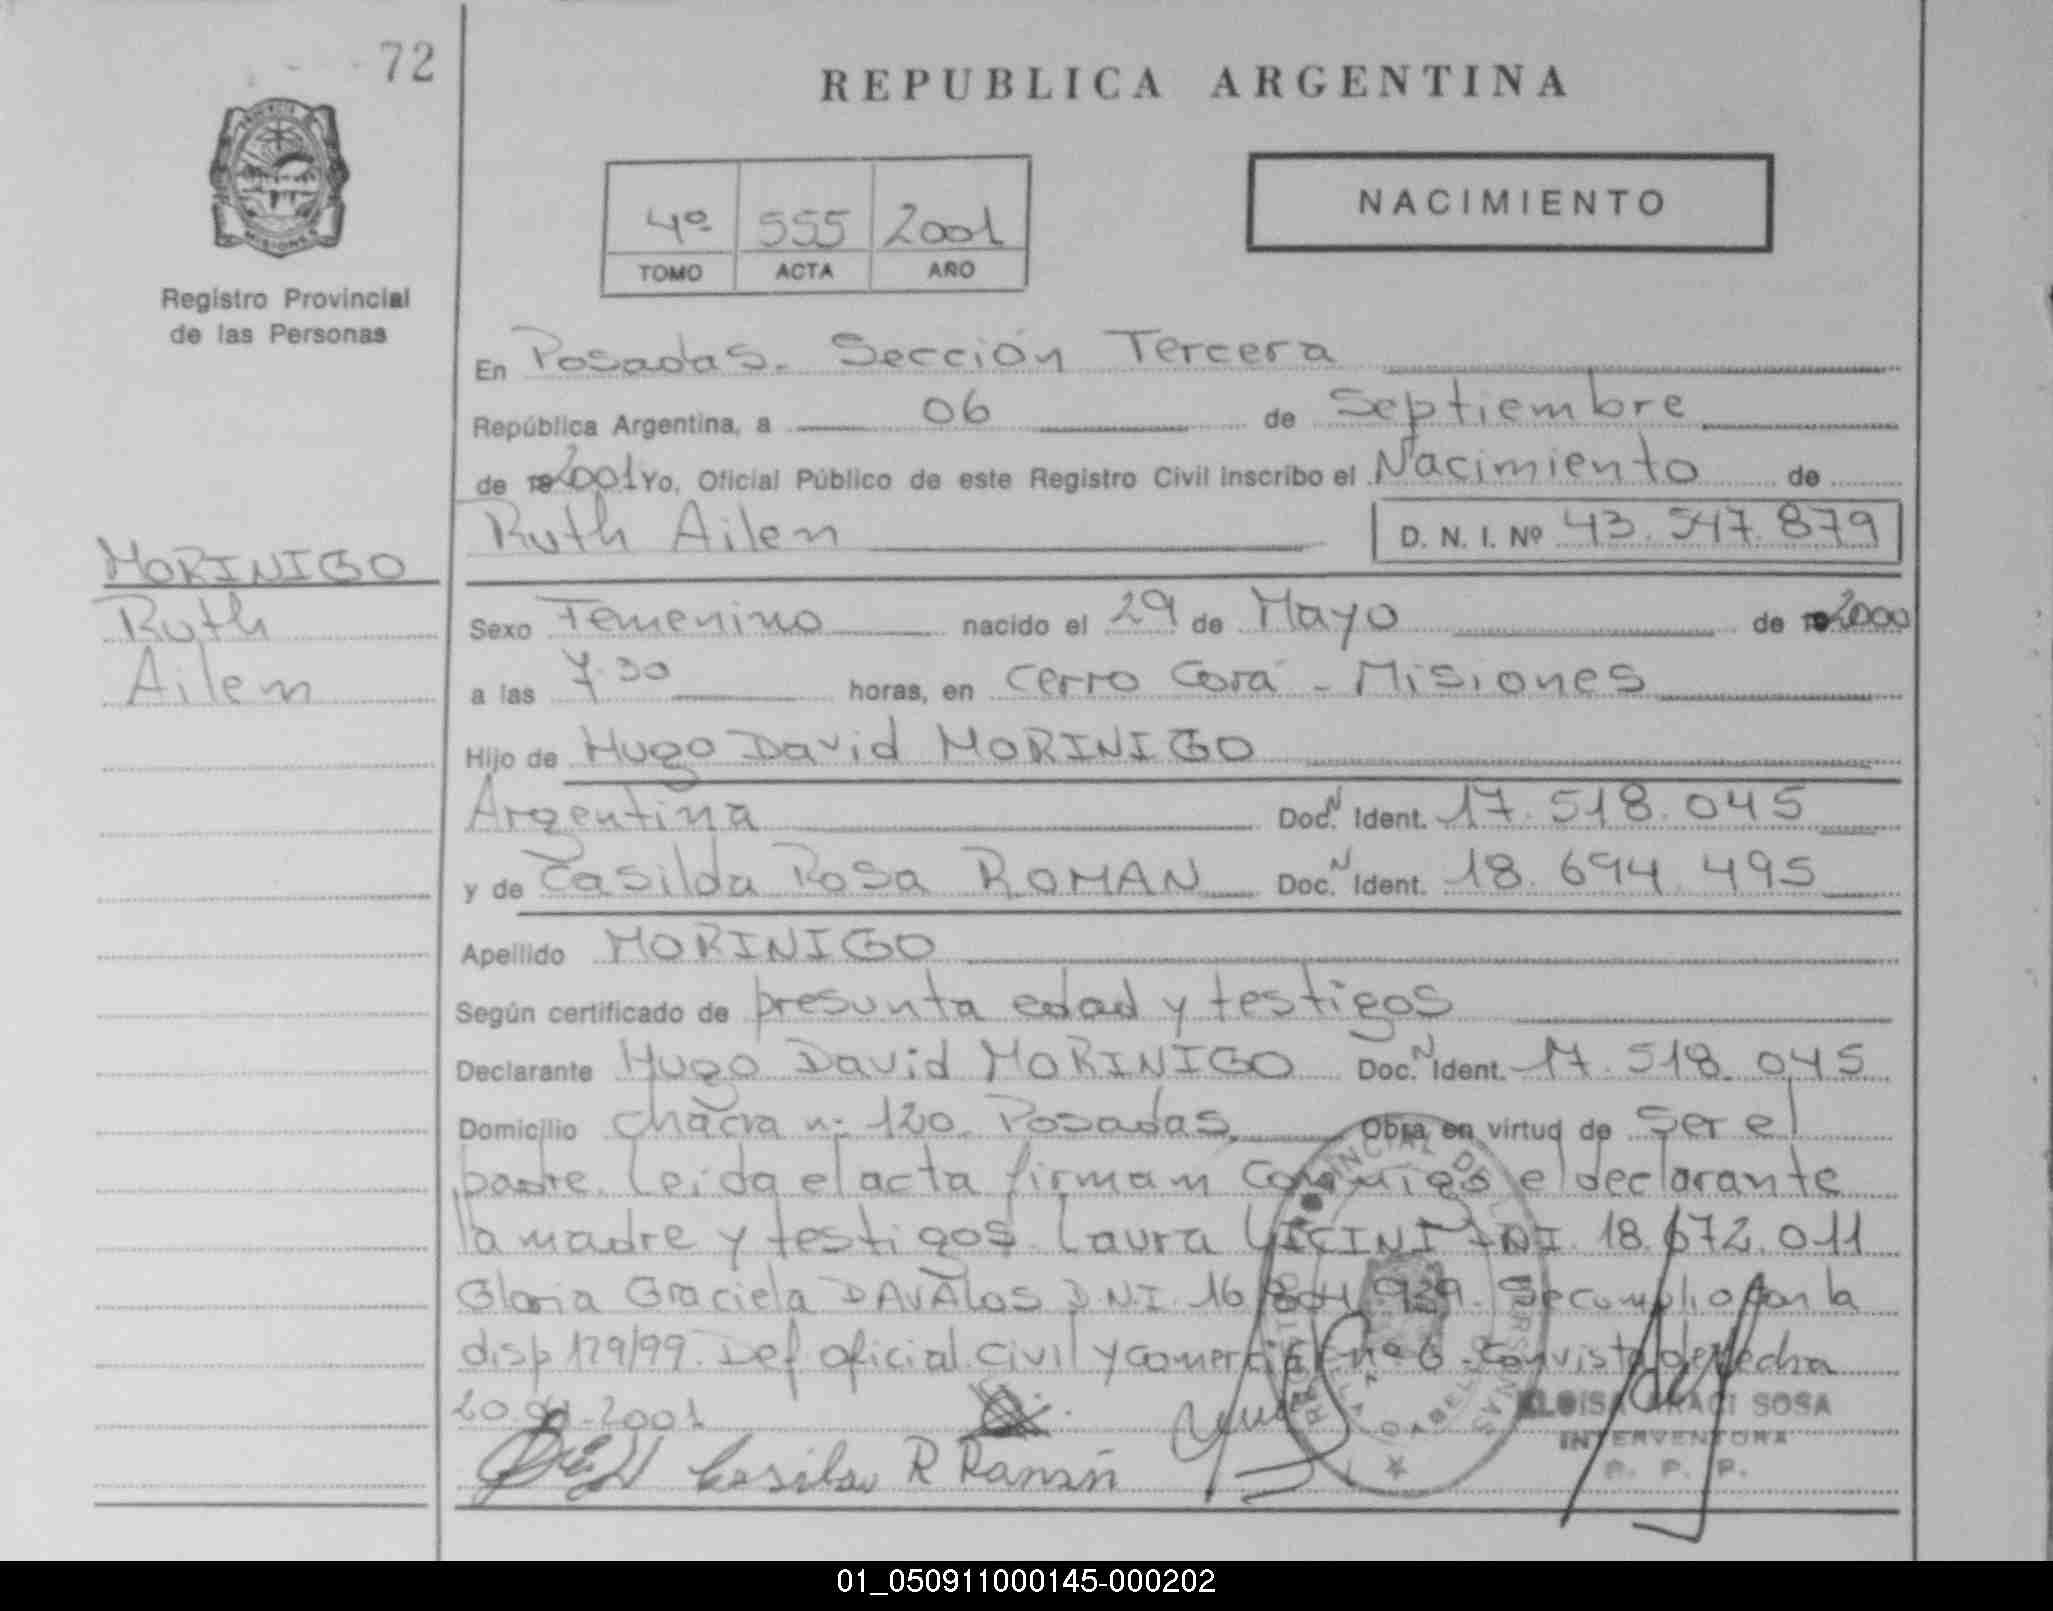 72
REPUBLICA ARGENTINA
PROVINCIA
MISIONES
Registro Provincial
de las Personas
4º 555 2001
TOMO ACTA AÑO
NACIMIENTO
En Posadas. Sección Tercera
República Argentina, a 06 de Septiembre
de 2001 Yo, Oficial Público de este Registro Civil inscribo el Nacimiento de
Ruth Ailen D. N. I. Nº 43.547.879
MORINIGO
Ruth
Ailen
Sexo Femenino nacido el 29 de Mayo de 2000
a las 7.30 horas, en Cerro Corá - Misiones
Hijo de Hugo David MORINIGO
Argentina Doc.N Ident. 17.518.045
y de Casilda Rosa ROMAN Doc.N Ident. 18.694.495
Apellido MORINIGO
Según certificado de presunta edad y testigos
Declarante Hugo David MORINIGO Doc.N Ident. 17.518.045
Domicilio chacra nº 120. Posadas. Obra en virtud de ser el
padre. Leida el acta firmam conmigo el declarante
la madre y testigos. Laura DNI. 18.672.011
Gloria Graciela DAVALOS DNI. 16. 939. Se cumplio con la
disp 179/99. Def oficial Civil y comercial nº 6. con vista de fecha
20. 2001
Casilda R Román
ELOISA ARACI SOSA
INTERVENTORA
R. P. P.
01_050911000145-000202